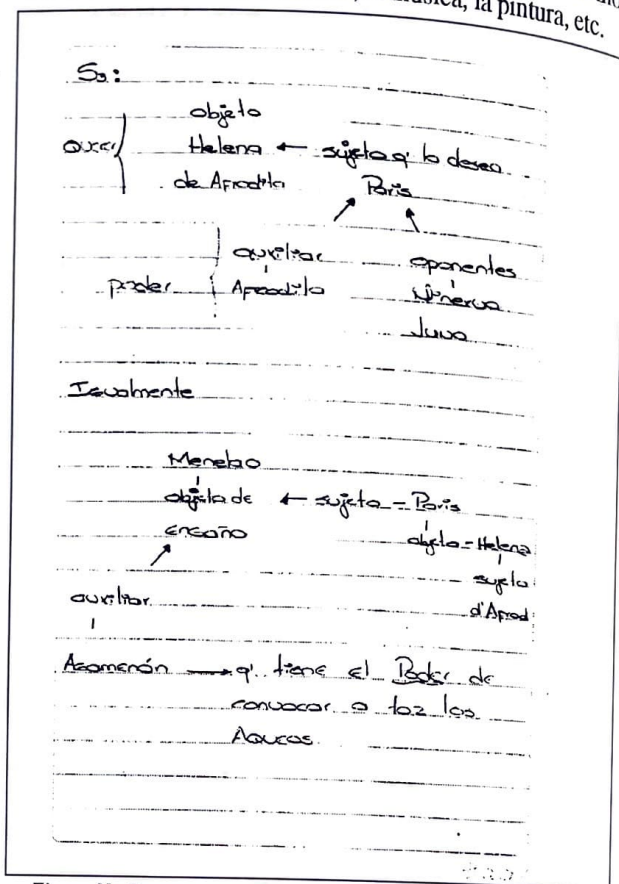 la pintura, etc.
So:
objeto
querer Helena ← sujeto q' lo desea
de Afrodita Paris
auxiliar oponentes
poder Afrodita Minerva
Juno
Igualmente
Menelao
objeto de ← sujeto = Paris
engaño objeto = Helena
sujeto
auxiliar d'Afrod
Agamenón → q' tiene el Poder de
convocar a toz los
Aqueos